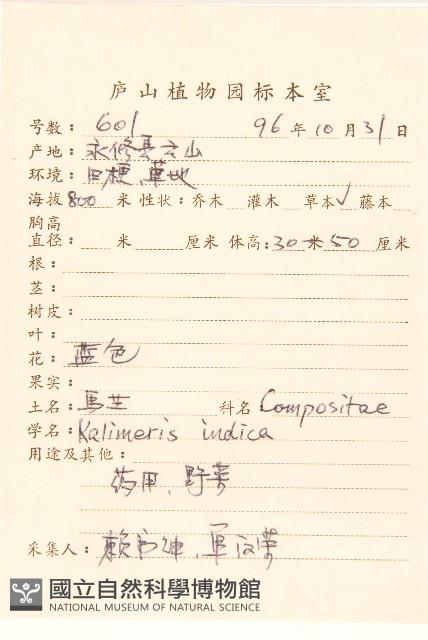 庐山植物园标本室
号数: 601 96年10月31日
产地: 永修县云山
环境: 田梗,草地
海拔 800 米 性状: 乔木 灌木 草本√ 藤本
胸高
直径: 米 厘米 体高: 30米50厘米
根:
茎:
树皮:
叶:
花: 蓝色
果实:
土名: 馬兰 科名 Compositae
学名: Kalimeris indica
用途及其他:
药用、野菜
采集人: 賴
國立自然科學博物館
NATIONAL MUSEUM OF NATURAL SCIENCE